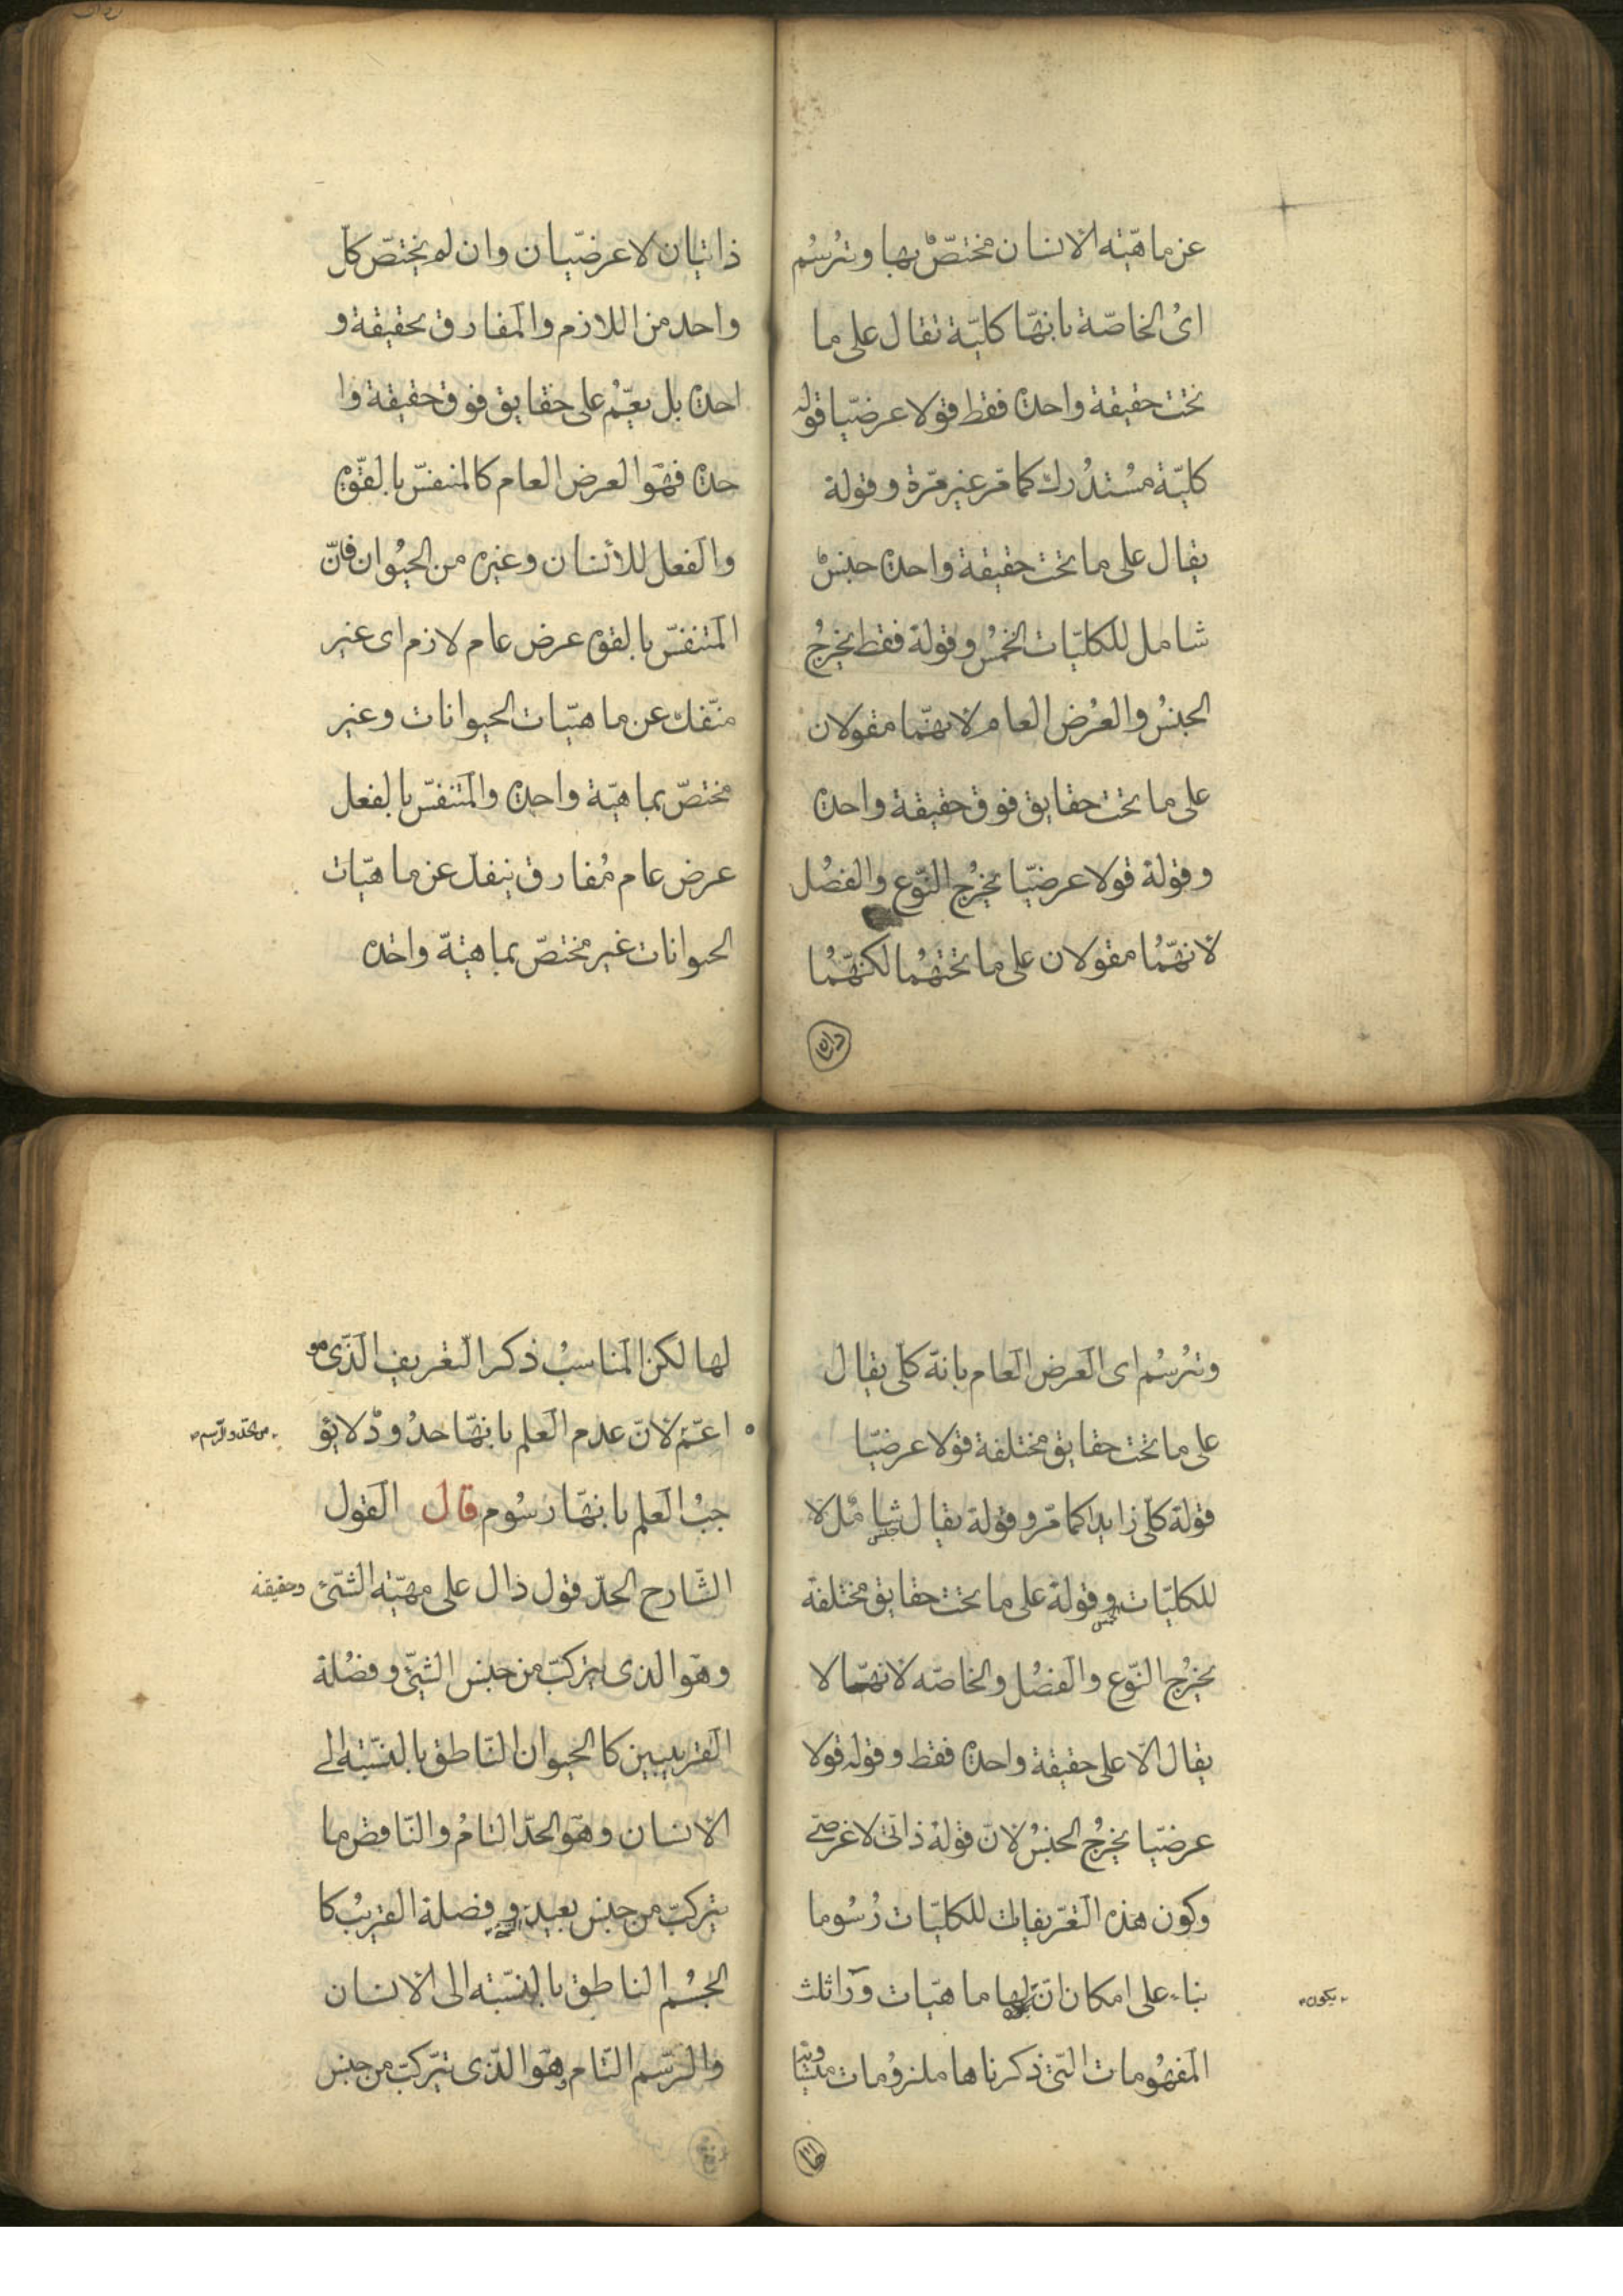 عن ماهيّته الانسان مختصٌّ بها وتُرسُم
اىُ الخاصّة بانهّا كليّة تقال على ما
تحت حقيقة واحدة فقط قولا عرضيّا قوله
كليّة مُستدُرك كما مّر غير مّرة وقولة
يقال على ما تحت حقيقة واحدة جنسٌ
شامل للكليّات الخمُس وقولة فقط يخرجُ
الجنسُ والعرُض العام لانهمّا مقولان
على ما تحت حقايق فوق حقيقة واحدة
وقولة قولا عرضيّا يخرجُ النّوع والفصُل
لانهمُّا مقولان على ما تحتهمُا لكنهّمُا
ذاتيان لا عرضيّان وان لم يختصّ كل
واحد من اللازم والمفارق بحقيقة و
احدة بل يعمُّ على حقايق فوق حقيقة وا
حدة فهوَ العرض العام كالمتنفسّ بالقوّة
والفعل للأنسان وغيره من الحيُوان فانّ
المتنفسّ بالقوة عرض عام لازم اى غير
منفّك عن ماهيّات الحيوانات وغير
مختصّ بماهيّة واحدة والمتنفسّ بالفعل
عرض عام مُفارق ينفك عن ماهيّات
الحيوانات غير مختصّ بماهيّة واحدة
وتُرسُم اى العَرض العَام بانهّ كلّى يقال
على ما تحت حقايق مختلفة قولا عرضيّا
قولهّ كلّى زايد كما مّر وقولة يقال شامُل لا
جنس
للكليّات وقولة على ما تحت حقايق مختلفة
الخمس
يخرُج النّوع والفصُل والخاصّه لانهّما لا
يقال الّا على حقيقة واحدة فقط وقوله قولا
عرضيّا يخرجُ الجنسُ لانّ قولهُ ذاتّى لا عرضىّ
وكون هذه التعّريفات للكليّات رُسُوما
بناء على امكان انّ لها ماهيّات ورَاء ثلث
يكون
المفهُومات التّى ذكرناها ملزوُمات
لها لكن المناسبُ ذكر التّعريف الذّى هو
اعّم لانّ عدم العلم بانهّا حدُودٌ لا يو
من الحّد والرّسم
جبُ العَلم بانهّا رسُوم قال القول
الشّارح الحدّ قول دال على مهيّته الشّىء وحقيقته
وهوَ الذى يتركبّ من جنس الشّئ وفصُلة
القريبين كالحيوان النّاطق بالنسّبته الى
الانسان وهوَ الحدّ التامُ والنّاقص ما
يتركبّ من جنس بعيد وفصلة القريبُ كا
الجسُم الناطق بالنسّبته الى الانسان
والرّسم التّام وهوَ الذّى يتّركبّ من جنس